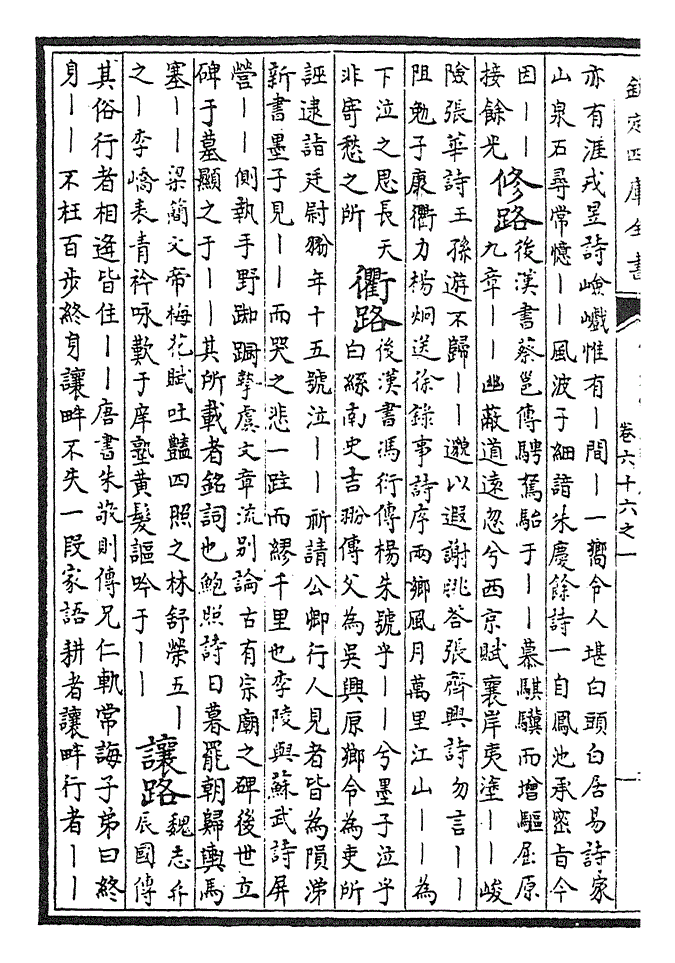 欽定四庫全書
卷六十六之一
亦有涯戎昱詩嶮巇惟有丨間丨一嚮令人堪白頭白居易詩家
山泉石尋常憶丨丨風波子細諳朱慶餘詩一自鳳池承密旨今
因丨丨
接餘光
修路
後漢書蔡邕傳騁駑駘于丨丨慕騏驥而增驅屈原
九章丨丨幽蔽道遠忽兮西京賦襄岸夷塗丨丨峻
險張華詩王孫遊不歸丨丨邈以遐謝朓答張齊興詩勿言丨丨
阻勉子康衢力楊炯送徐錄事詩序兩鄉風月萬里江山丨丨為
下泣之思長天
非寄愁之所
衢路
後漢書馮衍傳楊朱號乎丨丨兮墨子泣乎
白絲南史吉翂傳父為吳興原鄉令為吏所
誣逮詣廷尉翂年十五號泣丨丨祈請公卿行人見者皆為隕涕
新書墨子見丨丨而哭之悲一跬而繆千里也李陵與蘇武詩屏
營丨丨側執手野踟蹰摯虞文章流别論古有宗廟之碑後世立
碑于墓顯之于丨丨其所載者銘詞也鮑照詩日暮罷朝歸輿馬
塞丨丨梁簡文帝梅花賦吐豔四照之林舒榮五丨
之丨李嶠表青衿咏歎于庠塾黄髮謳吟于丨丨
讓路
魏志弁
辰國傳
其俗行者相逢皆住丨丨唐書朱敬則傳兄仁軌常誨子弟曰終
身丨丨不枉百步終身讓畔不失一段家語耕者讓畔行者丨丨